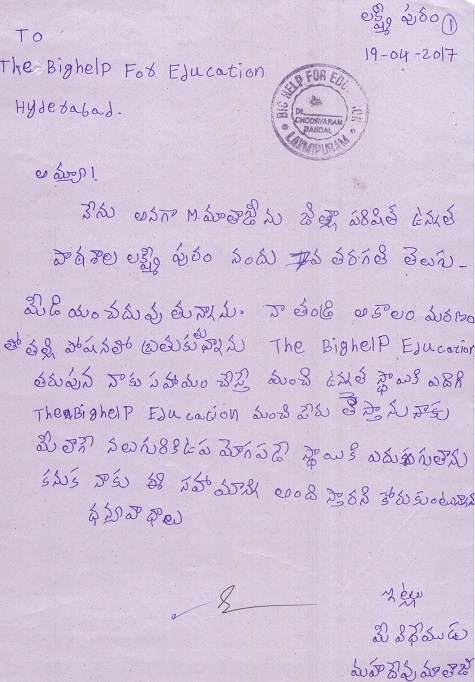 లక్ష్మీ పురం ①
TO
19-04-2017
The BighelP For Education
Hyderabad.
BIG HELP FOR EDUCATION
CHODAVARAM
MANDAL
LAXMIPURAM
అమ్మా!
నేను అనగా M.మాతాజీను జిల్లా పరిషత్ ఉన్నత
పాఠశాల లక్ష్మీ పురం నందు 7వ తరగతి తెలుగు-
మీడియం చదువుతున్నాను. నా తండ్రి అకాల మరణం
తో తల్లి పోషనలో బ్రతుకుతున్నాను The BighelP Education
తరుపున నాకు సహాయం చేస్తే మంచి ఉన్నత స్థాయికి ఎదిగి
The BighelP Education మంచి పేరు తెస్తాను నాకు
మీలాగే నలుగురికి ఉపయోగపడే స్థాయికి ఎదుగుతాను
కనుక నాకు ఈ సహాయాన్ని అందిస్తారని కోరుకుంటున్నాను
ధన్యవాధాలు
ఇట్లు
మీ విధేయుడు
మహాదేవు మాతాజీ